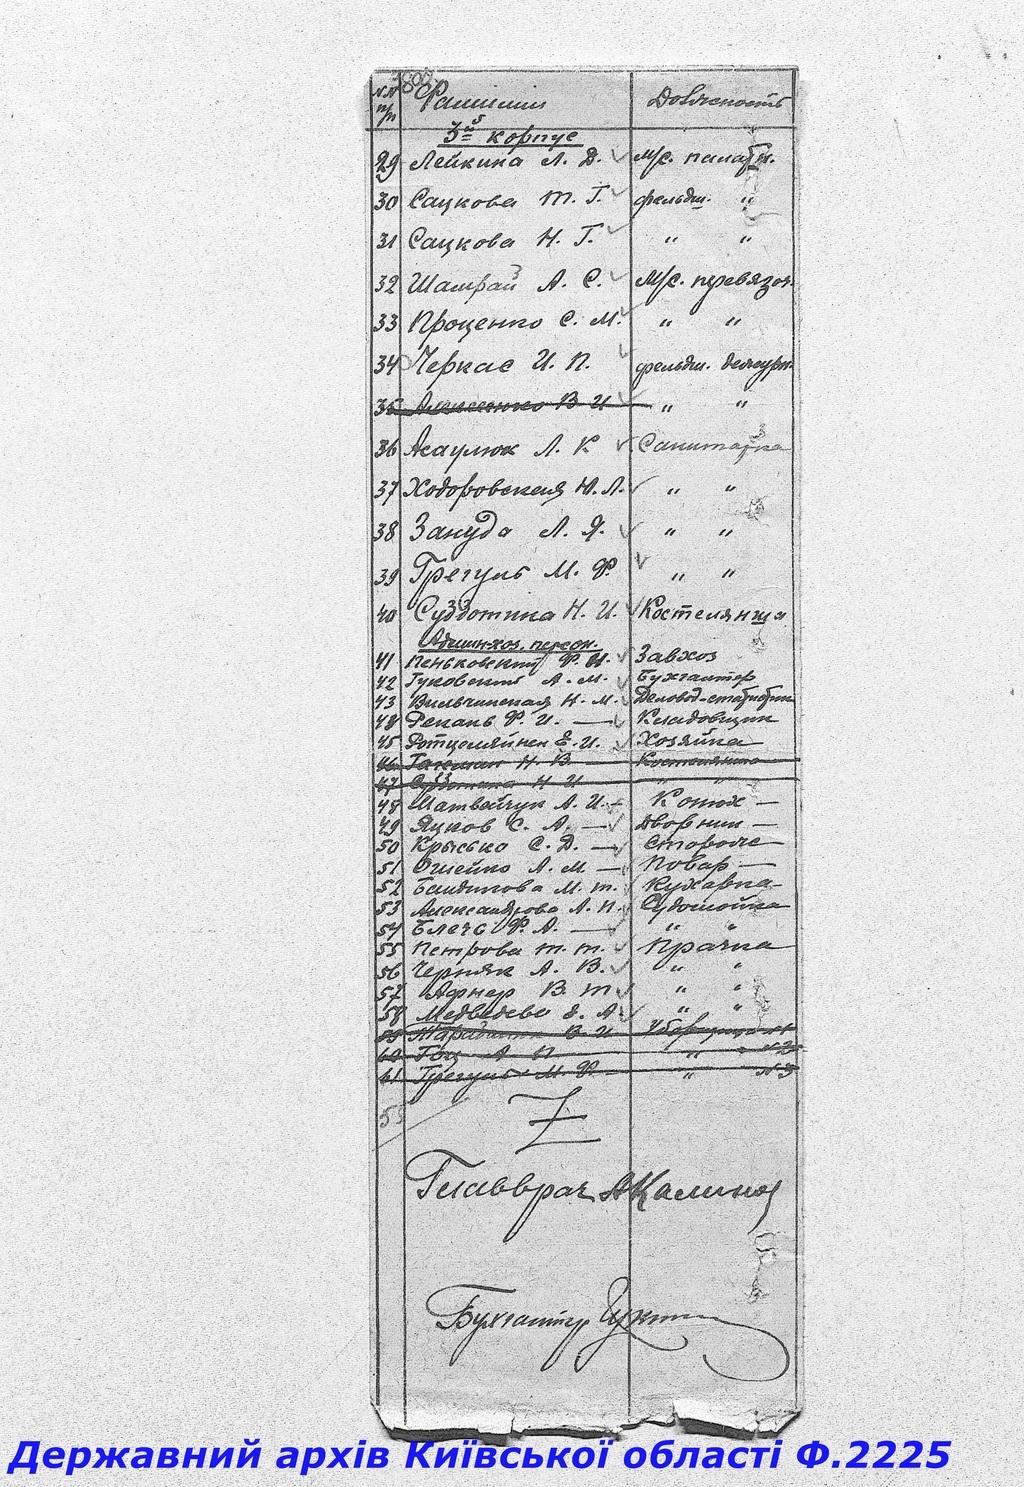 №№ п/п Фамилии Должность
3й корпус
29 Лейкина Л. Д. М/с. палатн.
30 Сацкова Т. Г. фельдш. "
31 Сацкова Н. Г. " "
32 Шамрай А. С. М/с. перевязоч.
33 Проценко С. М. " "
34 Черкас И. П. фельдш. дежурн.
35 Алексеенко В И " "
36 Асаулюк Л. К Санитарка
37 Ходоровская Н. Л. " "
38 Зануда Л. Я. " "
39 Грегуль М. Ф. " "
40 Субботина Н. И. Костелянша
Админ-хоз. персон.
41 Пеньковский Ф. И. Завхоз
42 Гуковский А. М. Бухгалтер
43 Вильчинская Н. М. Деловод-статистик
44 Репань Ф. И. — Кладовщик
45 Ротцеляйнен Е. И. Хозяйка
46 Гакман Н. В. Костелянша
47 Субботина Н И " "
48 Матвейчук А. И. — Конюх —
49 Яцков С. А. — Дворник —
50 Крысько С. Д. — Сторож —
51 Ошейко А. М. — Повар —
52 М. Т. Кухарка —
53 Александрова А. П. Судомойка
54 Блечс Ф. А. — " "
55 Петрова Т. Т. Прачка
56 Черняк А. В. " "
57 Афнер В. Т " "
58 Медведева Е. А. " "
59 В. И Уборщица №1
60 Гоц А П " " №2
61 Грегуль М. Ф. — " №3
55
Z
Главврач АКалинов
Бухгалтер
Державний архів Київської області Ф.2225